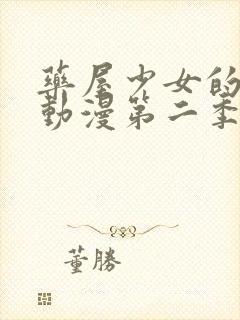 藥屋少女的
動漫第二季
董勝